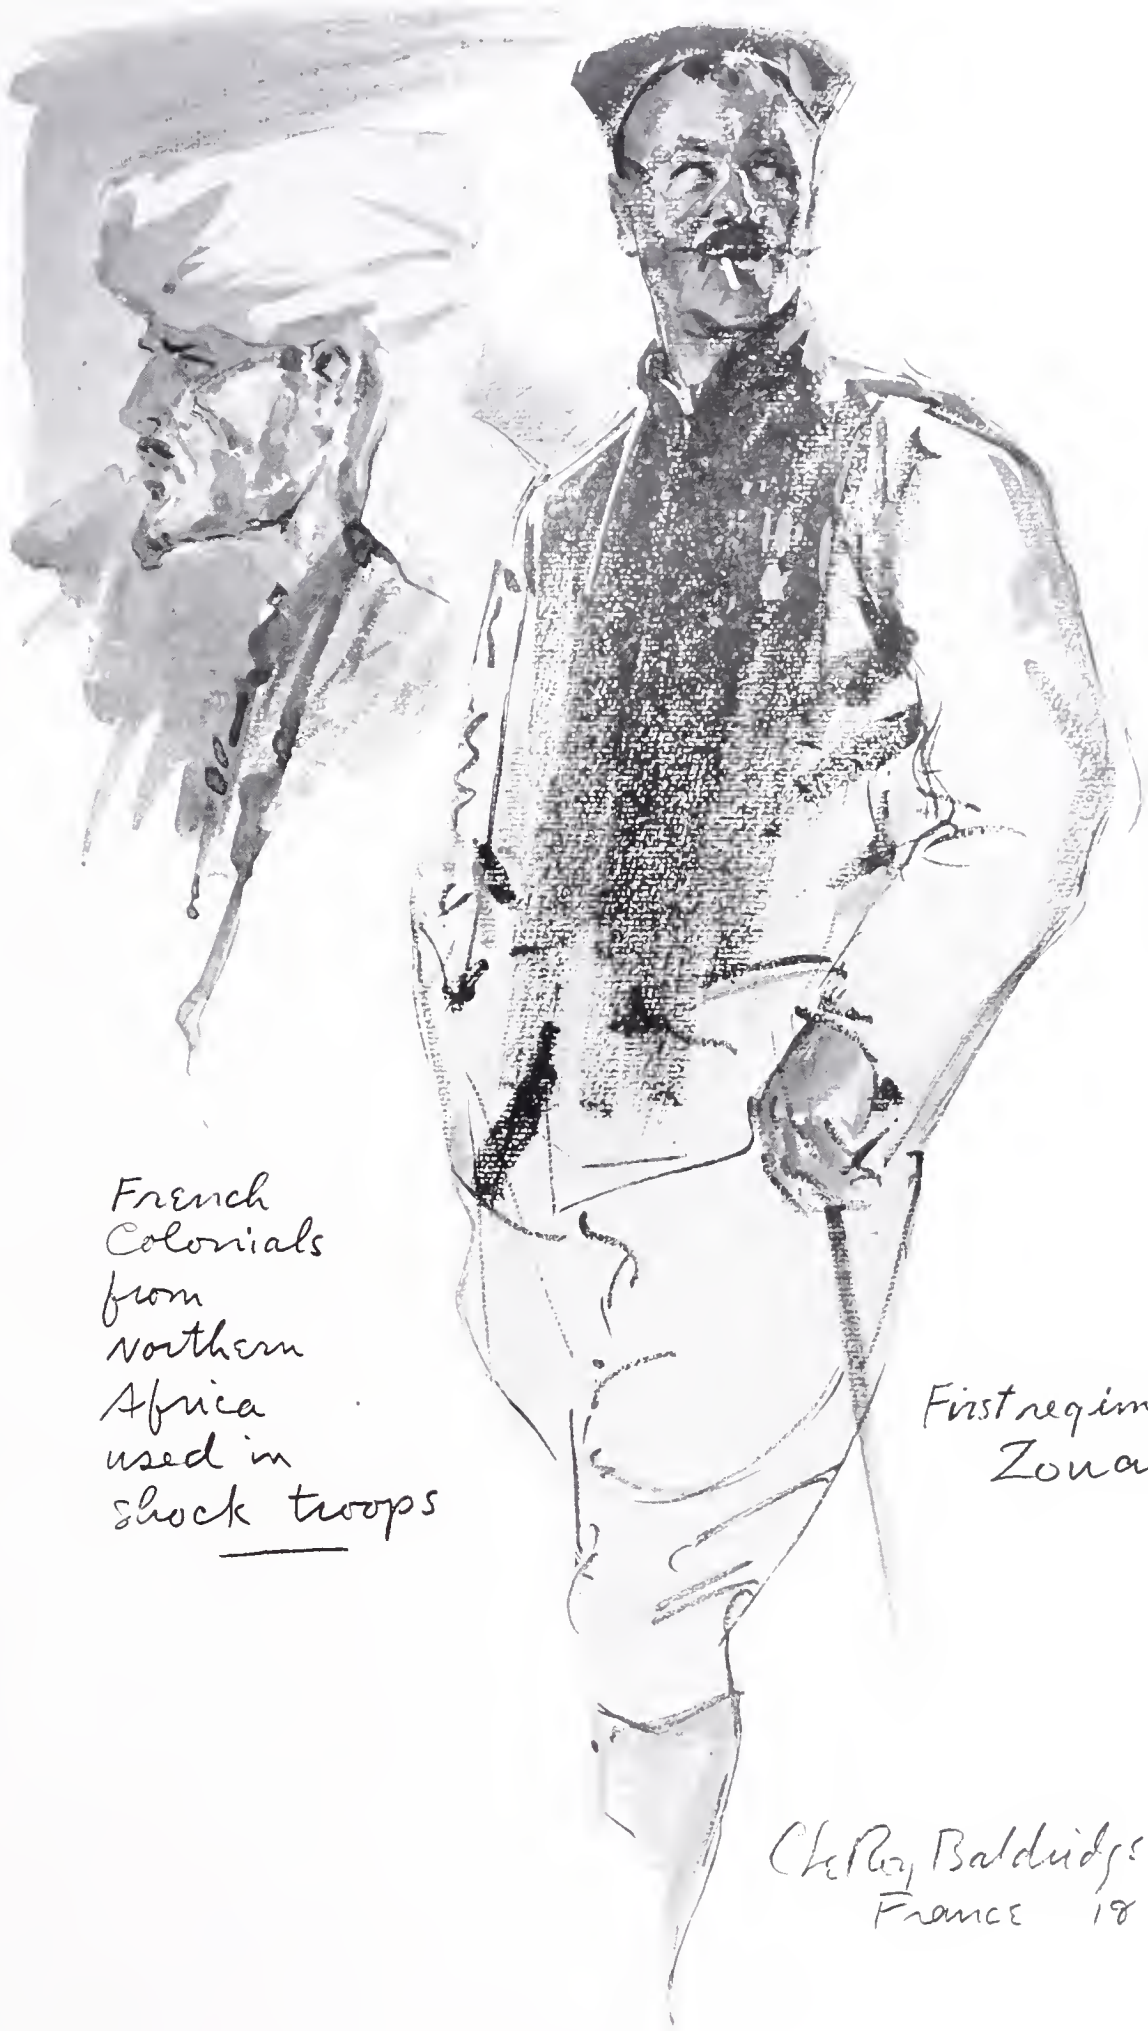 French
Colonials
from
Northern
Africa
used in
shock troops
First regim
Zoua
C LeRoy Baldridge
France 18